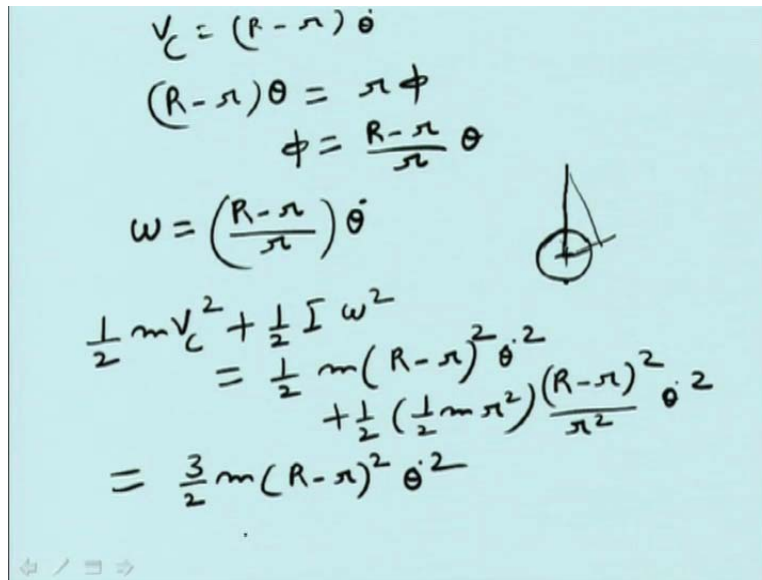 V_C = (R - r) θ̇
(R - r)θ = r ϕ
ϕ = \frac{R - r}{r} θ
ω = (\frac{R - r}{r}) θ̇
\frac{1}{2} m V_C^2 + \frac{1}{2} I ω^2
= \frac{1}{2} m (R - r)^2 θ̇^2
+ \frac{1}{2} (\frac{1}{2} m r^2) \frac{(R - r)^2}{r^2} θ̇^2
= \frac{3}{2} m (R - r)^2 θ̇^2